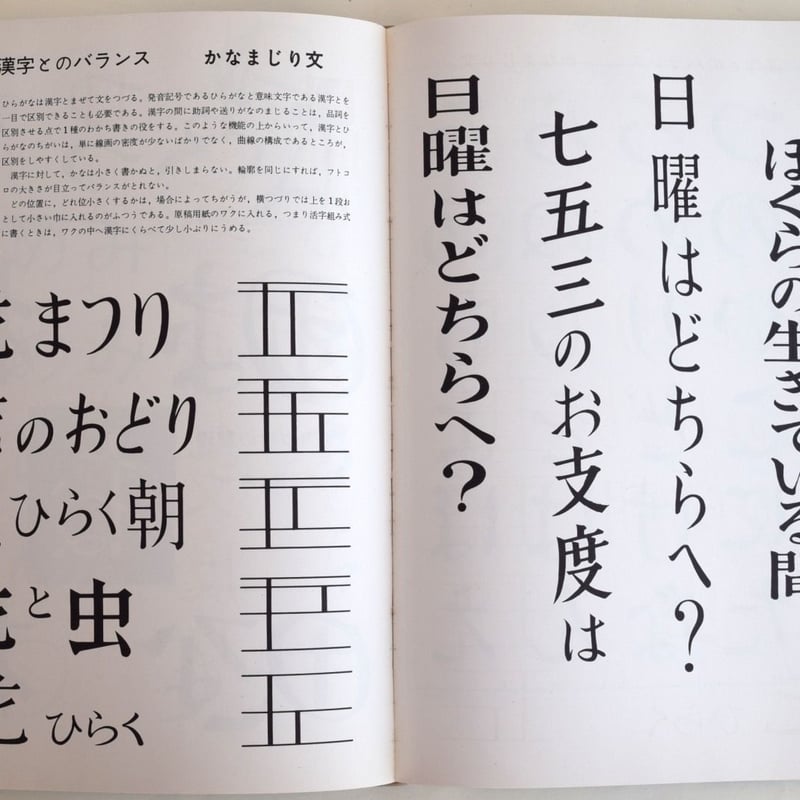 漢字とのバランス　かなまじり文
ひらがなは漢字とまぜて文をつづる。発音記号であるひらがなと意味文字である漢字とを
一目で区別できることも必要である。漢字の間に助詞や送りがなのまじることは，品詞を
区別させる点で1種のわかち書きの役をする。このような機能の上からいって，漢字とひ
らがなのちがいは，単に線画の密度が少ないばかりでなく，曲線の構成であるところが，
区別をしやすくしている。
漢字に対して，かなは小さく書かぬと，引きしまらない。輪郭を同じにすれば，フトコ
ロの大きさが目立ってバランスがとれない。
どの位置に，どれ位小さくするかは，場合によってちがうが，横つづりでは上を1段お
として小さい巾に入れるのがふつうである。原稿用紙のワクに入れる，つまり活字組み式
に書くときは，ワクの中へ漢字にくらべて少し小ぶりにうめる。
まつり
のおどり
ひらく朝
と虫
ひらく
ぼくらの生きている間
日曜はどちらへ？
七五三のお支度は
日曜はどちらへ？